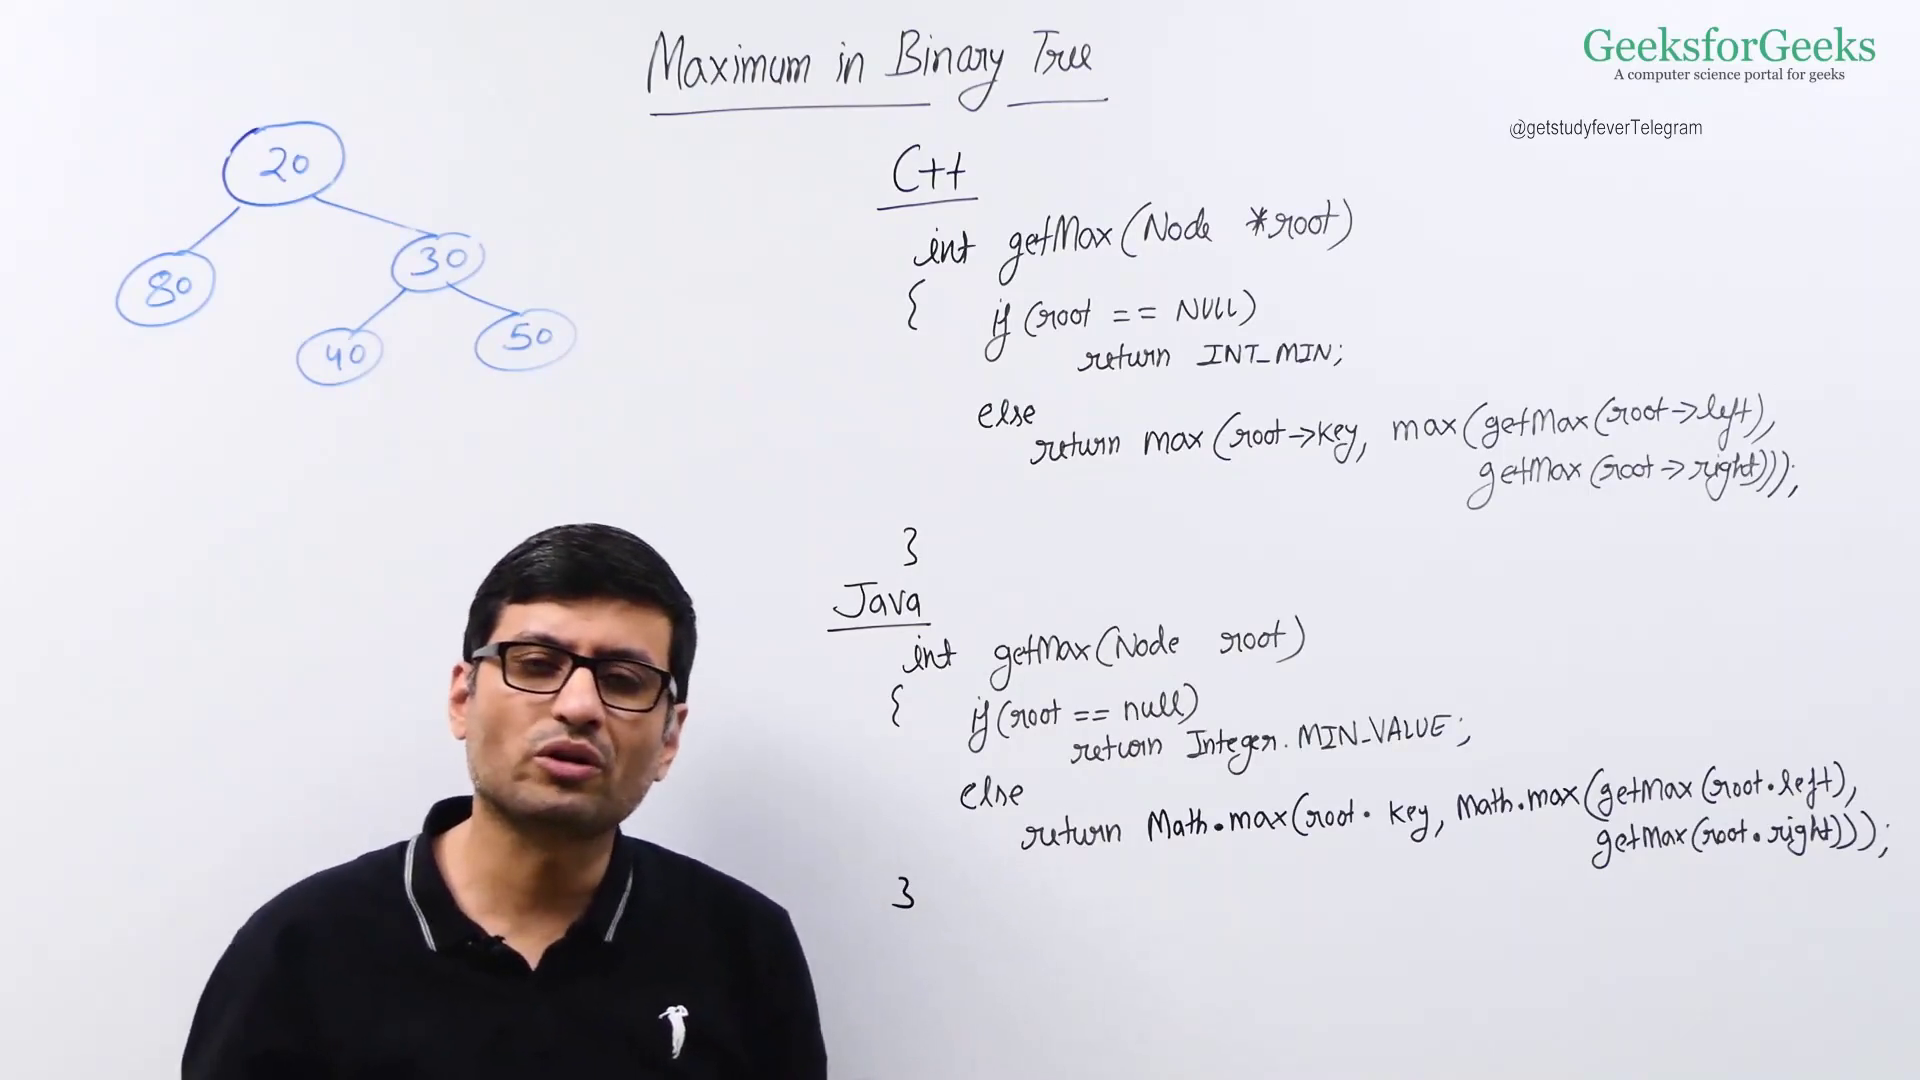 Maximum in Binary Tree
GeeksforGeeks
A computer science portal for geeks
@getstudyfeverTelegram
20
80
30
40
50
C++
int getMax(Node *root)
{ if (root == NULL)
return INT_MIN;
else
return max(root->key, max(getMax(root->left),
getMax(root->right)));
}
Java
int getMax(Node root)
{ if (root == null)
return Integer.MIN_VALUE;
else
return Math.max(root.key, Math.max(getMax(root.left),
getMax(root.right)));
}